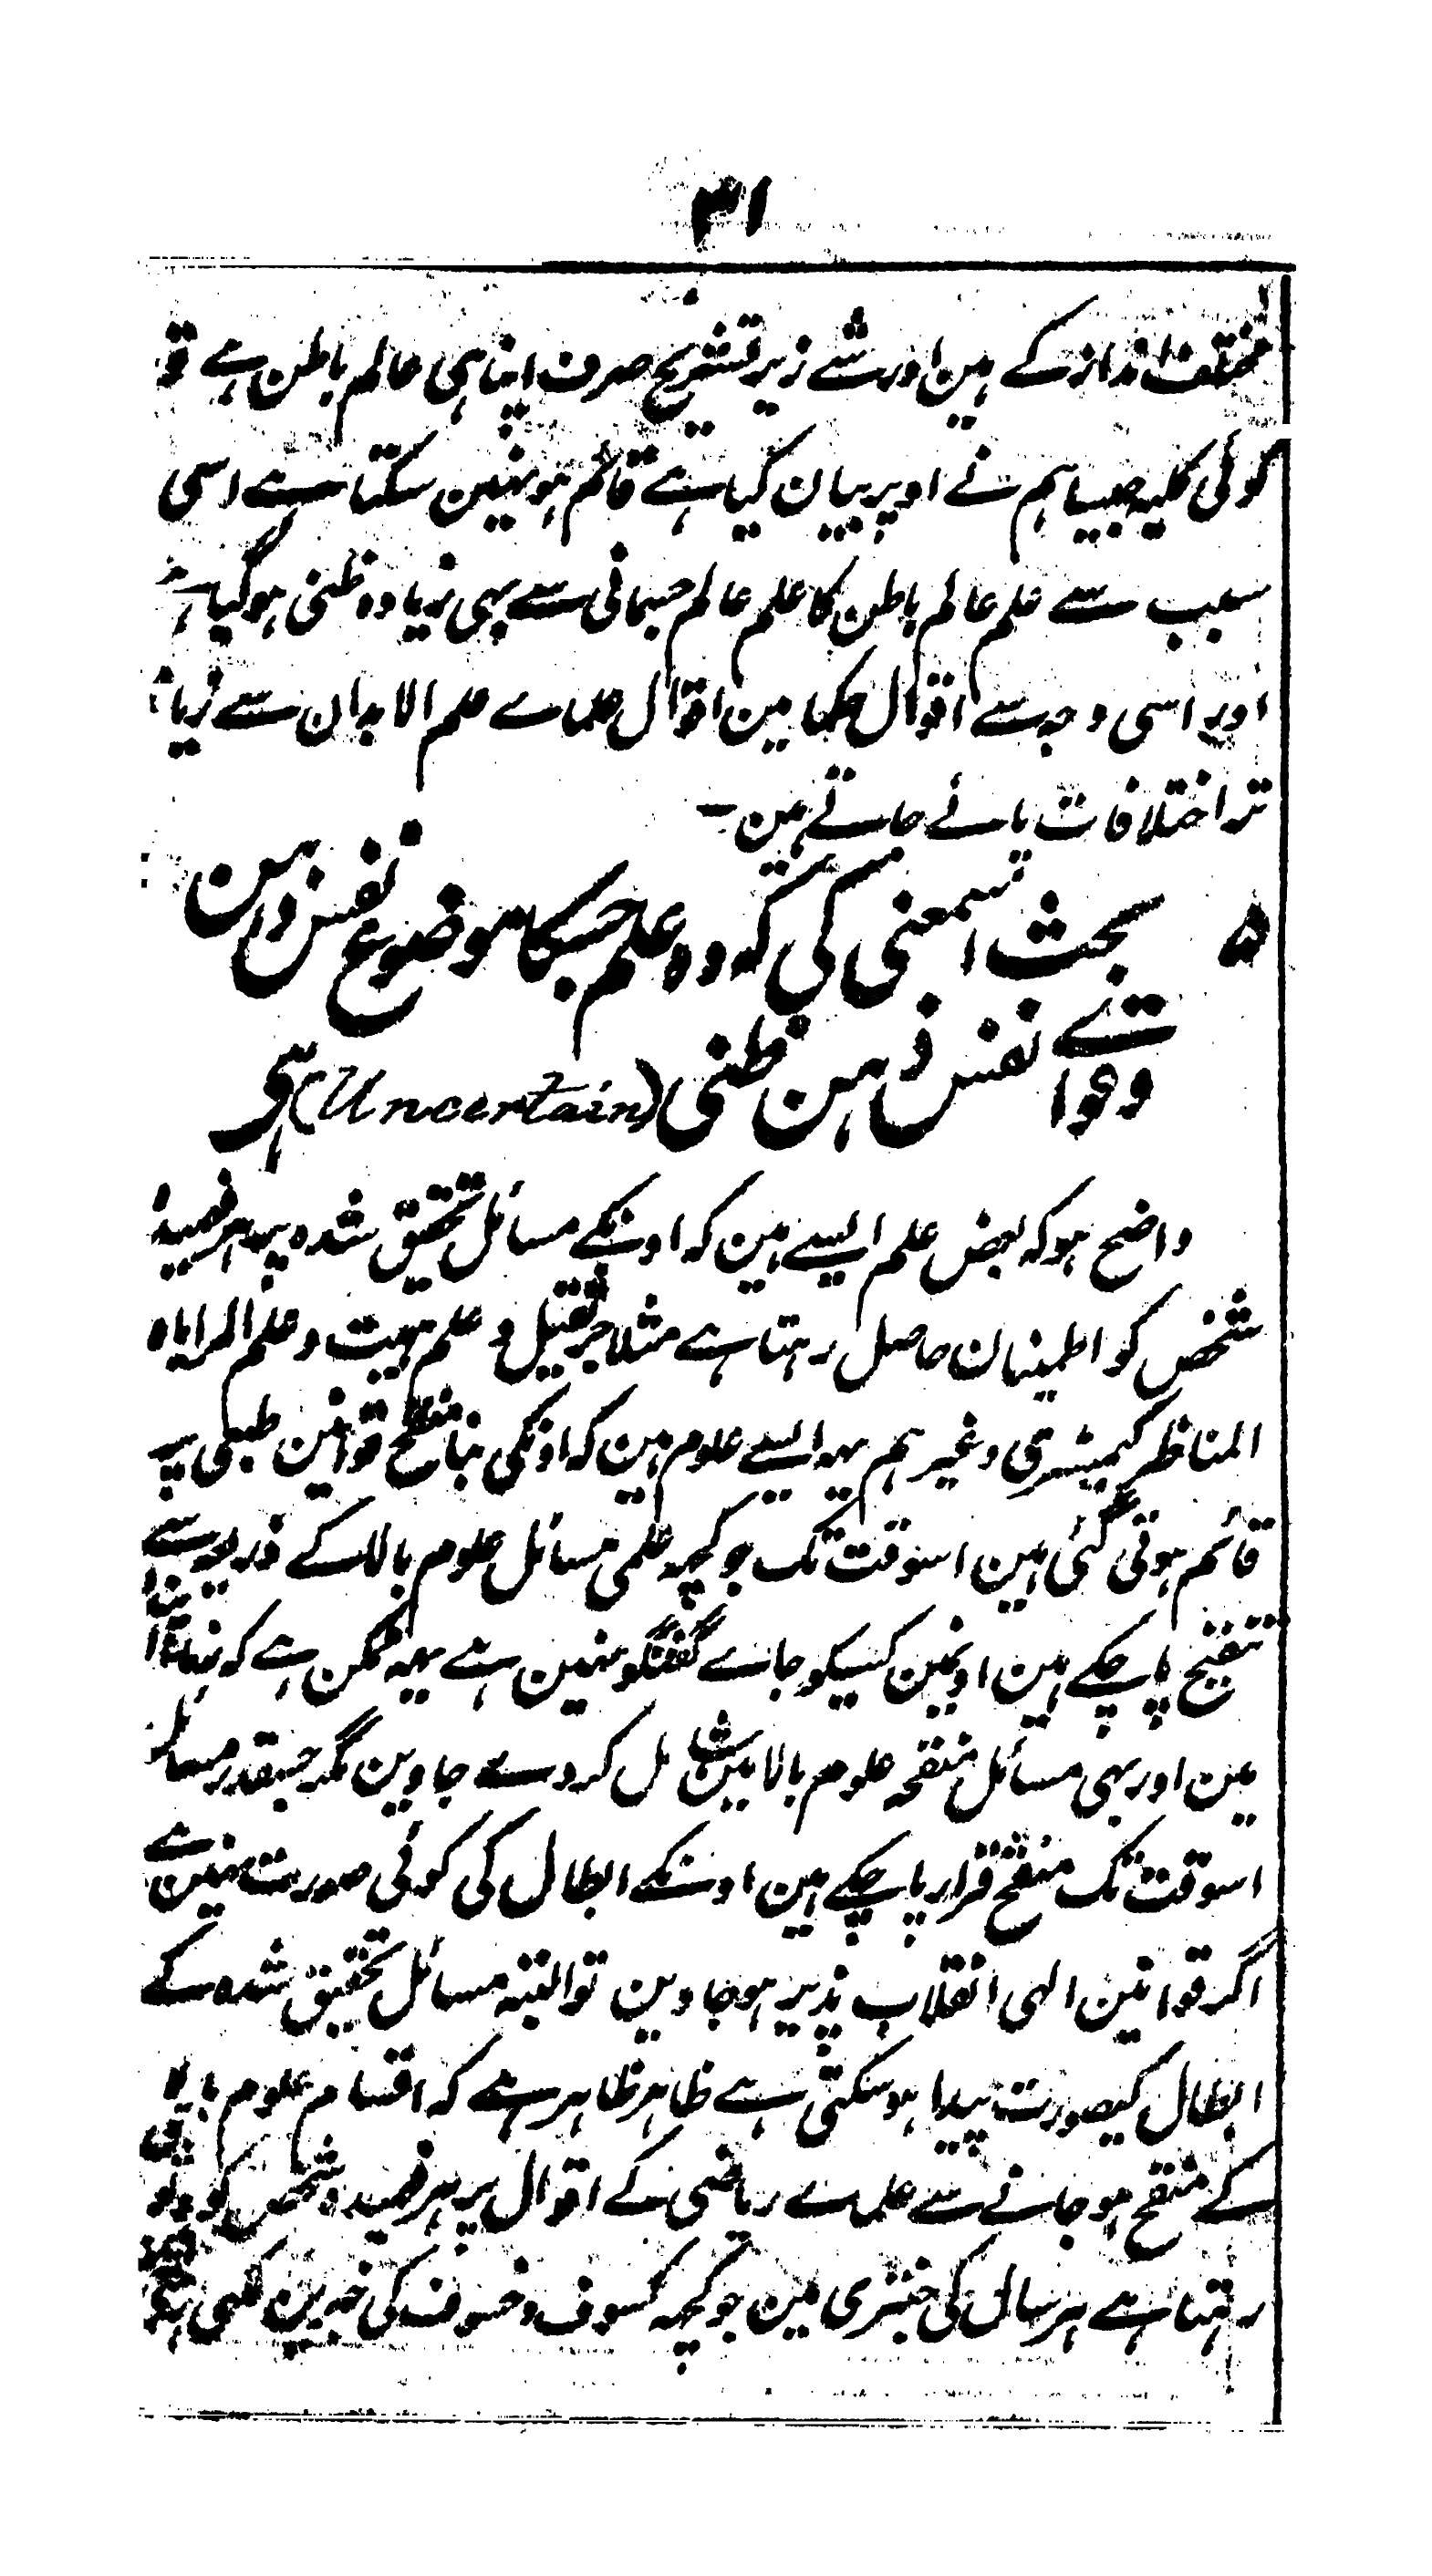 ۳۱
مختلف انداز کے ہین اور شے زیر تشریح صرف اپنا ہی عالم باطن ہے تو
کوئی کلیہ جیسا ہم نے اوپر بیان کیا ہے قائم ہو نہین سکتا ہے اسی
سبب سے علم عالم باطن کا علم عالم جسمانی سے بہی زیادہ ظنی ہو گیا ہے
اور اسی وجہ سے اقوال حکما مین اقوال علماے علم الابدان سے زیا
تر اختلافات پائے جاتے ہین ـ
۵ بحث اسمعنی کی کہ وہ علم جسکا موضوع نفس ذہن
وقواے نفس ذہن ظنی (Uncertain) ہی
واضح ہو کہ بعض علم ایسے ہین کہ اونکے مسائل تحقیق شدہ پر ہر فہمیدہ
شخص کو اطمینان حاصل رہتا ہے مثلا جر ثقیل و علم ہیئت و علم المرایا و
المناظر کیمیسٹری وغیر ہم یہہ ایسے علوم ہین کہ اونکی بنا منقح قوانین طبعی پر
قائم ہوتی گئی ہین اسوقت تک جو کچہہ علمی مسائل علوم بالا کے ذریعہ سے
تنقیح پا چکے ہین اونمین کسیکو جاے گفتگو نہین ہے یہہ ممکن ہے کہ زمانہ
مین اور بہی مسائل منقحہ علوم بالا مین شامل کر دے جاوین مگر جسقدر مسائل
اسوقت تک منقح قرار پا چکے ہین اونکے ابطال کی کوئی صورت نہین ہے
اگر قوانین الہی انقلاب پذیر ہو جاوین تو البتہ مسائل تحقیق شدہ کے
ابطال کیصورت پیدا ہو سکتی ہے ظاہر ظاہر ہے کہ اقسام علوم بالا
کے منقح ہو جانے سے علماے ریاضی کے اقوال پر ہر فہمیدہ شخص کو وثوق
رہتا ہے ہر سال کی جنتری مین جو کچہہ کسوف و خسوف کی خبرین لکہی